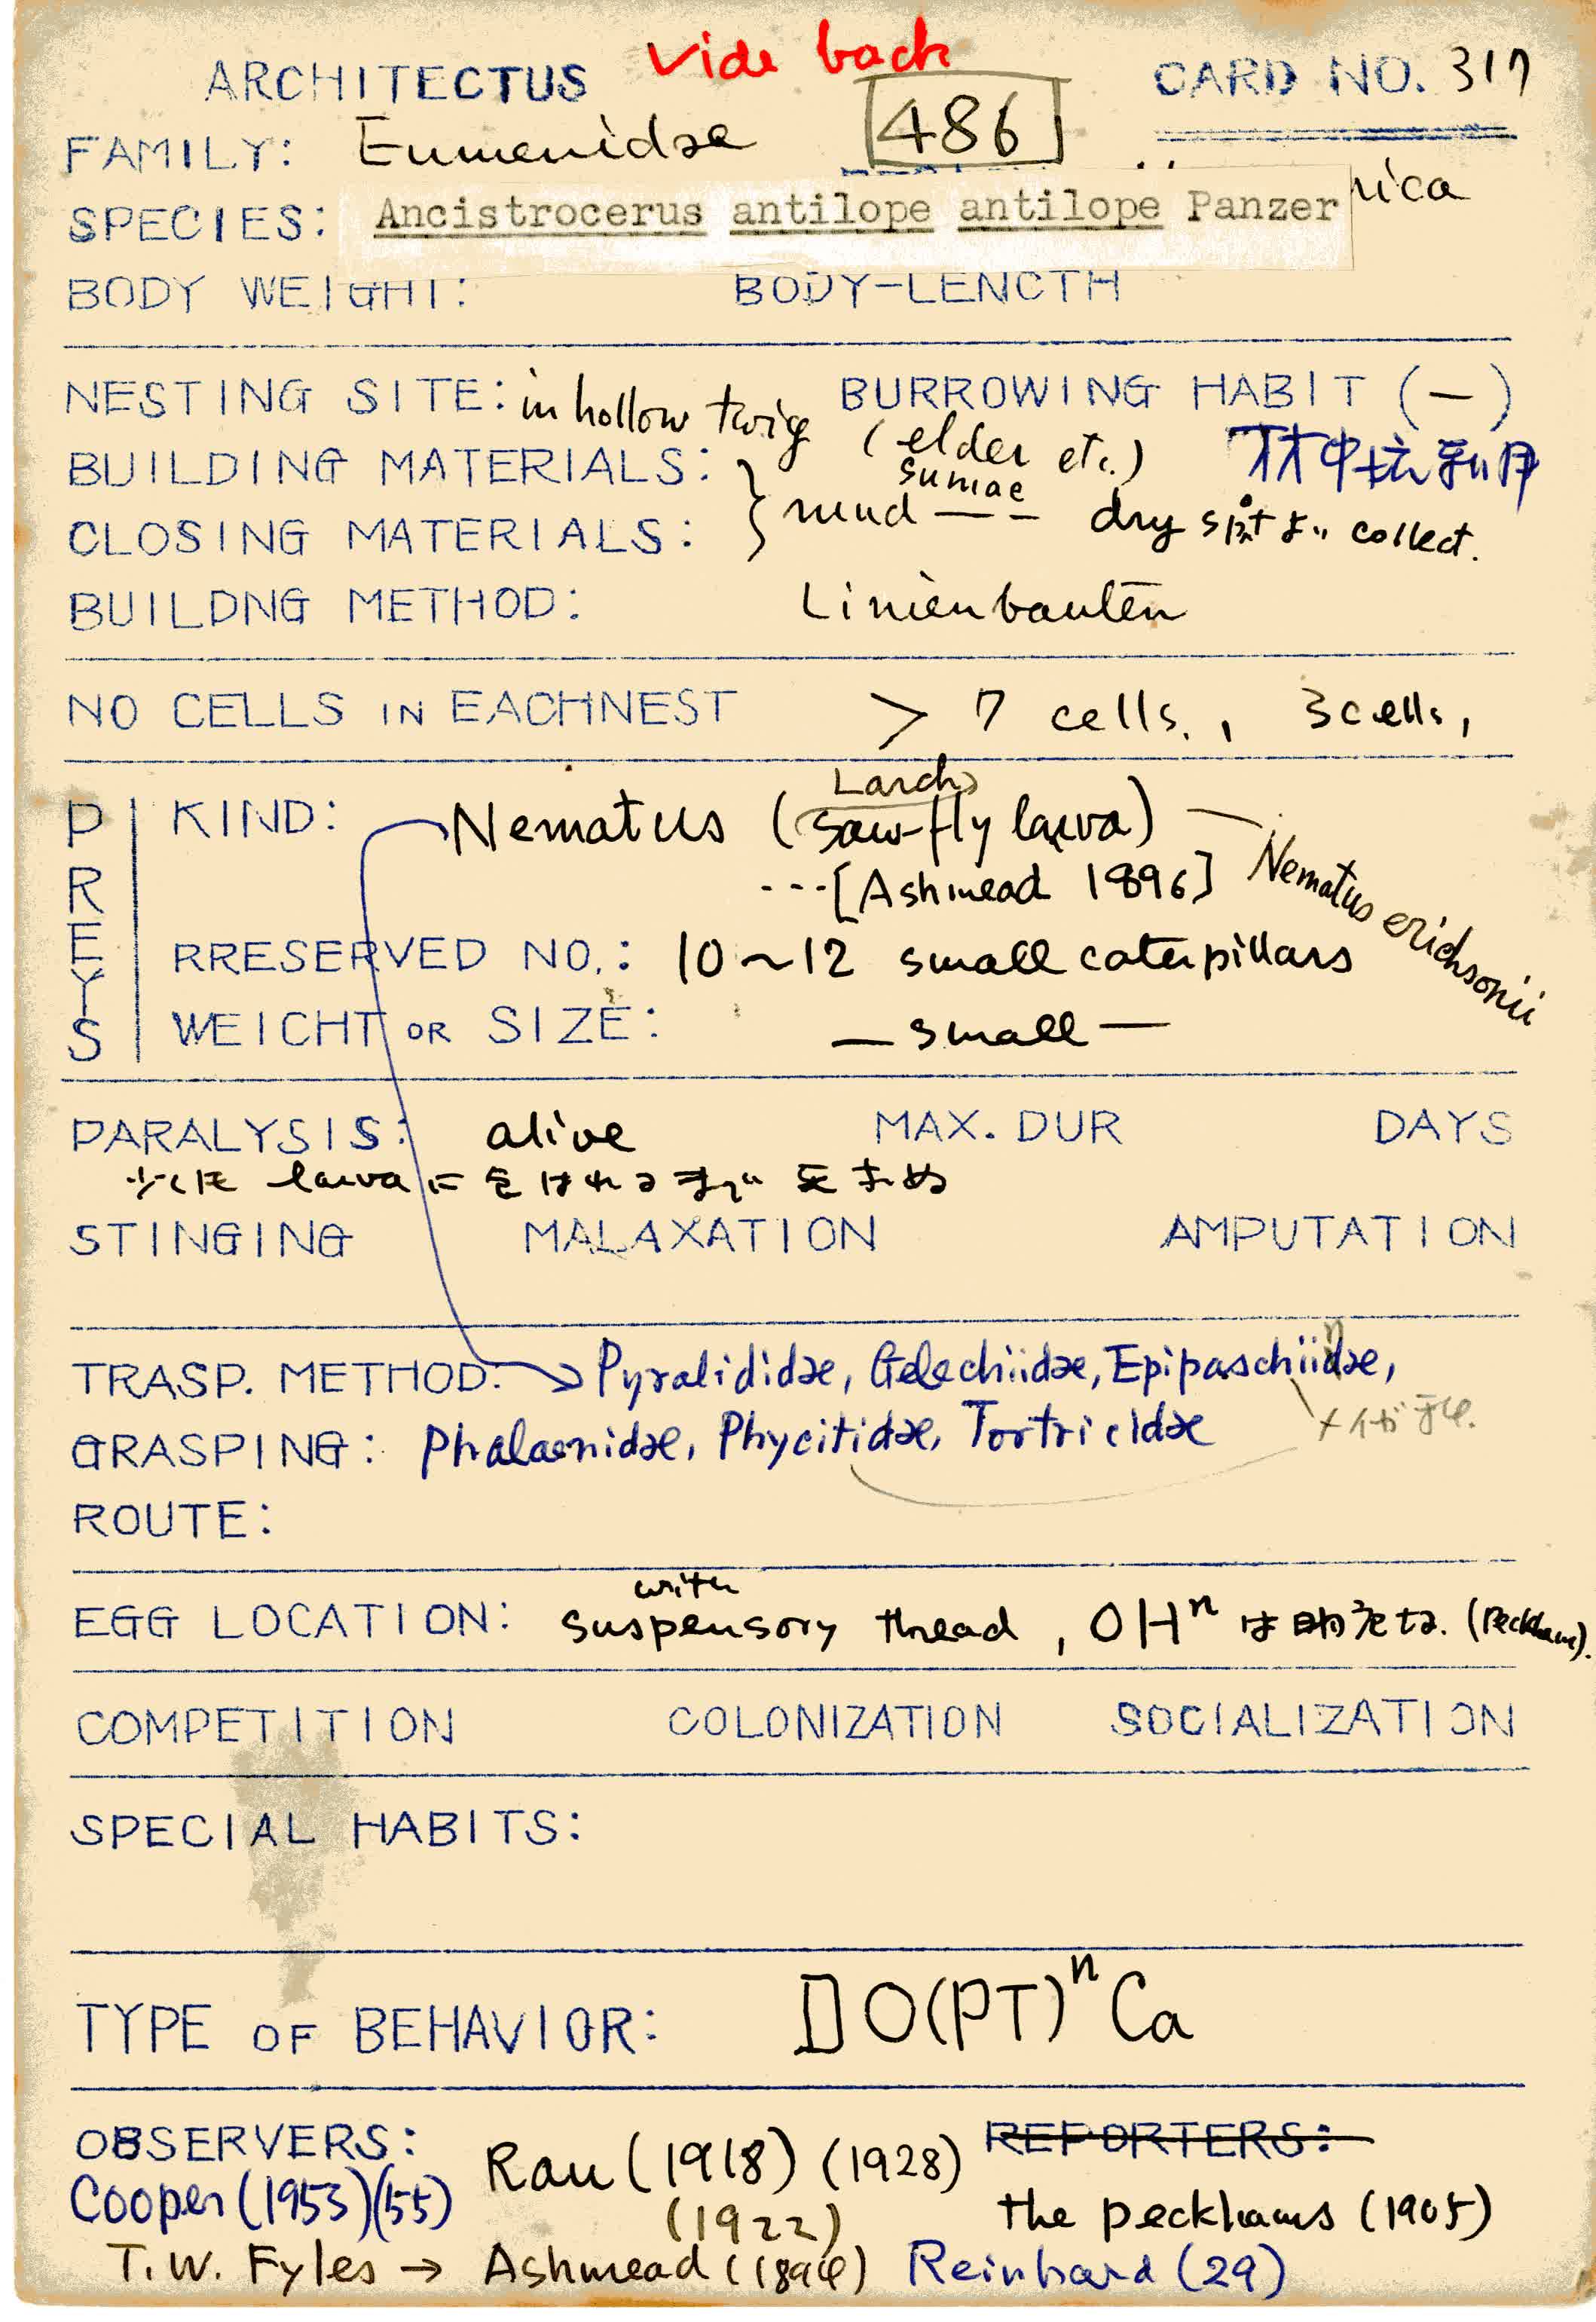 vide back
ARCHITECTUS
CARD NO. 317
486
FAMILY: Eumenidae
SPECIES: Ancistrocerus antilope antilope Panzer
BODY WEIGHT: BODY-LENCTH
NESTING SITE: in hollow twig (elder etc.) BURROWING HABIT (—)
sumac
材中坑利用
BUILDING MATERIALS:
CLOSING MATERIALS: } mud — — dry spot より collect.
BUILDNG METHOD: Linienbauten
NO CELLS IN EACHNEST > 7 cells., 3 cells,
PREYS
KIND: Nematus (Larch saw-fly larva) — Nematus erichsonii
---[Ashmead 1896]
RRESERVED NO.: 10~12 small caterpillars
WEICHT OR SIZE: — small —
PARALYSIS: alive MAX. DUR DAYS
少くは larva に
STINGING MALAXATION AMPUTATION
TRASP. METHOD: Pyralididae, Gelechiidae, Epipaschiinae,
GRASPING: Phalaenidae, Phycitidae, Tortricidae
ROUTE:
EGG LOCATION: with suspensory thread, OHⁿ は (Peckham).
COMPETITION COLONIZATION SOCIALIZATION
SPECIAL HABITS:
TYPE OF BEHAVIOR: O(PT)ⁿCa
OBSERVERS: Rau (1918) (1928) REPORTERS:
Cooper (1953)(55) (1922) the Peckhams (1905)
T.W. Fyles → Ashmead (1896) Reinhard (29)